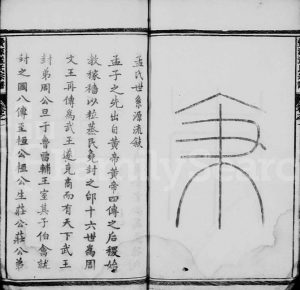 孟氏世系源流錄
孟子之先出自黃帝黃帝四傳之后稷始
教稼穡以粒蒸民堯封之邰十六世為周
文王再傳為武王遂克商而有天下武王
封弟周公旦于魯留輔王室其子伯禽就
封之國八傳至桓公桓公生莊公莊公弟